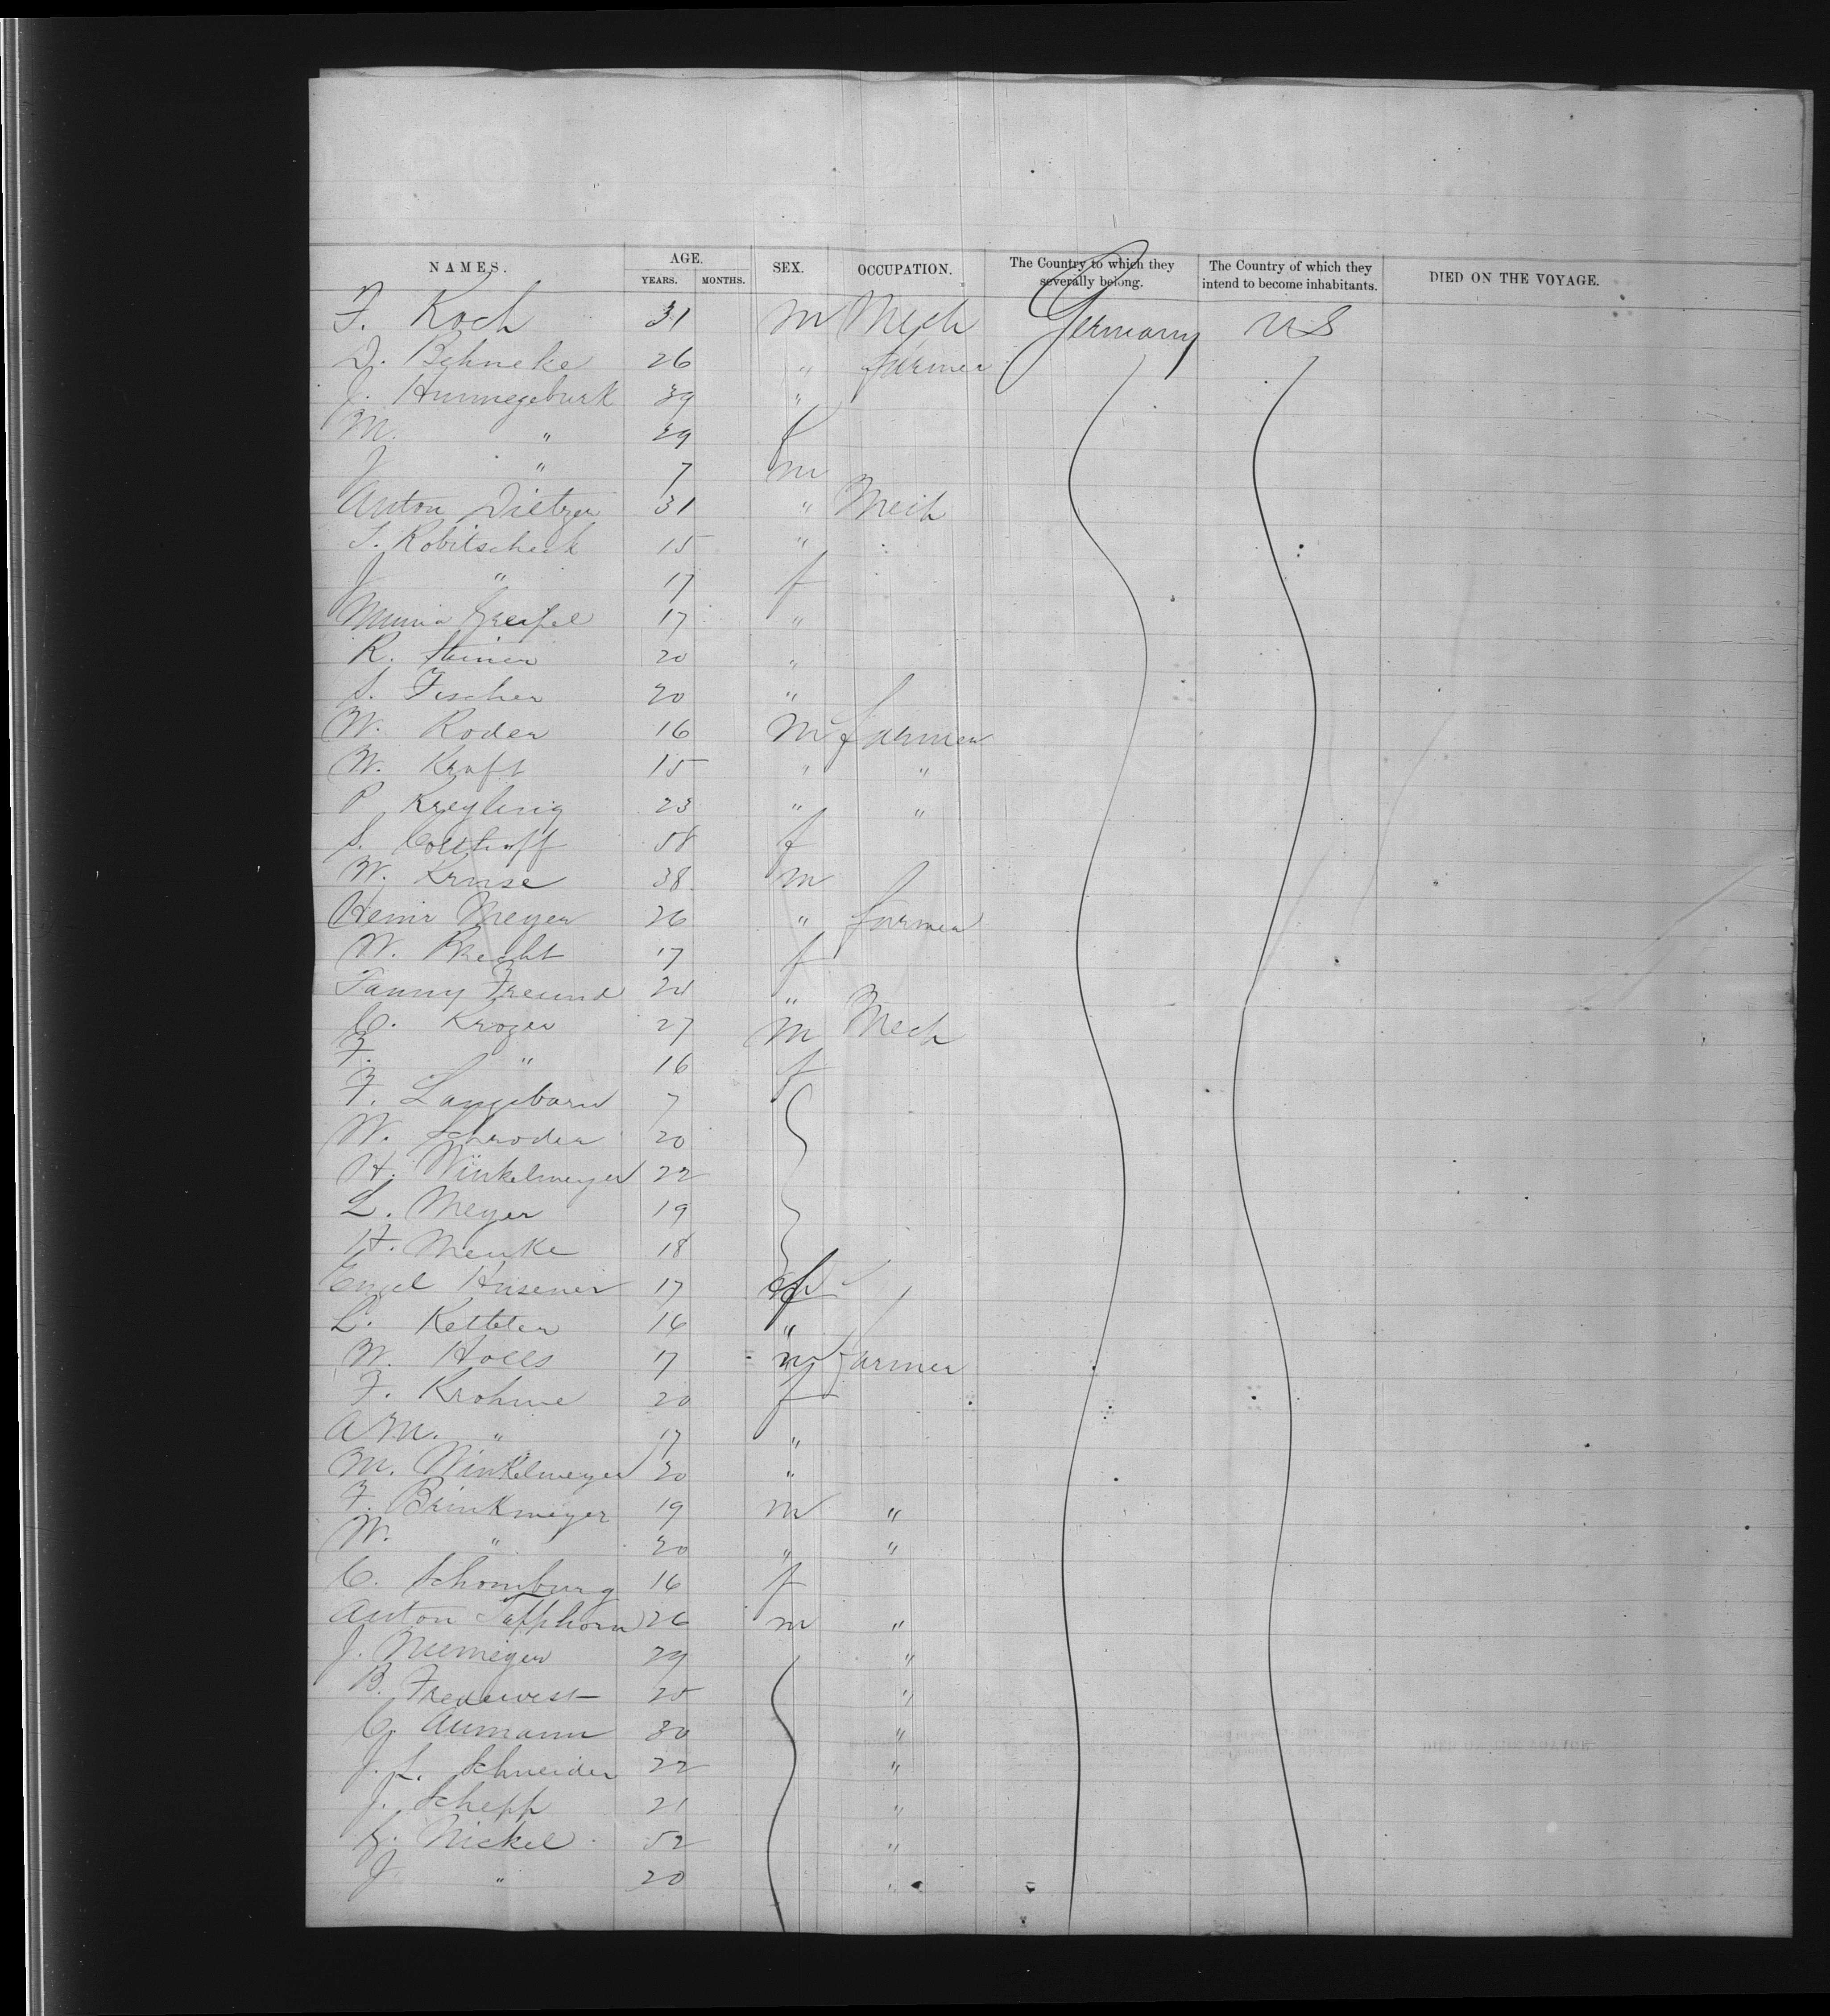 NAMES. AGE. SEX. OCCUPATION. The Country to which they severally belong. The Country of which they intend to become inhabitants. DIED ON THE VOYAGE.
YEARS. MONTHS.
F. Koch 31 m Mech Germany US
D. Behneke 26 " farmer
J. Hunnegeburk 39 "
M. " 29 f
J " 7 m
Anton Dietzer 31 " Mech
S. Robitscheck 15 "
J " 17 f
Minna 17 "
R. Steiner 20 "
S. Fischer 20 "
W. Roder 16 m farmer
W. Kraft 15 " "
P Kreyling 23 " "
S. 58 f
W. Kruse 38 m
Heinr Meyer 26 " farmer
W. Knecht 17 f
Fanny Freund 20 "
C. Kroger 27 m Mech
F. " 16 f
F. Langebarn 7
W. Schroder 20
H. Winkelmeyer 22
L. Meyer 19
H. Menke 18
Engel Husener 17 f
L. Ketteler 16 "
W. Holls 17 m farmer
F. Krohme 20 f
A M. " 17 "
M. Winkelmeyer 20 "
F. Brinkmeyer 19 m "
W. " 20 " "
C. Schomburg 16 f
Anton Tapphorn 26 m "
J. Niemeyer 29 "
B. Fredewest 25 "
C. Aumann 30 "
J. L. Schneider 22 "
J. Schepp 21 "
Nickel 52 "
J " 20 "